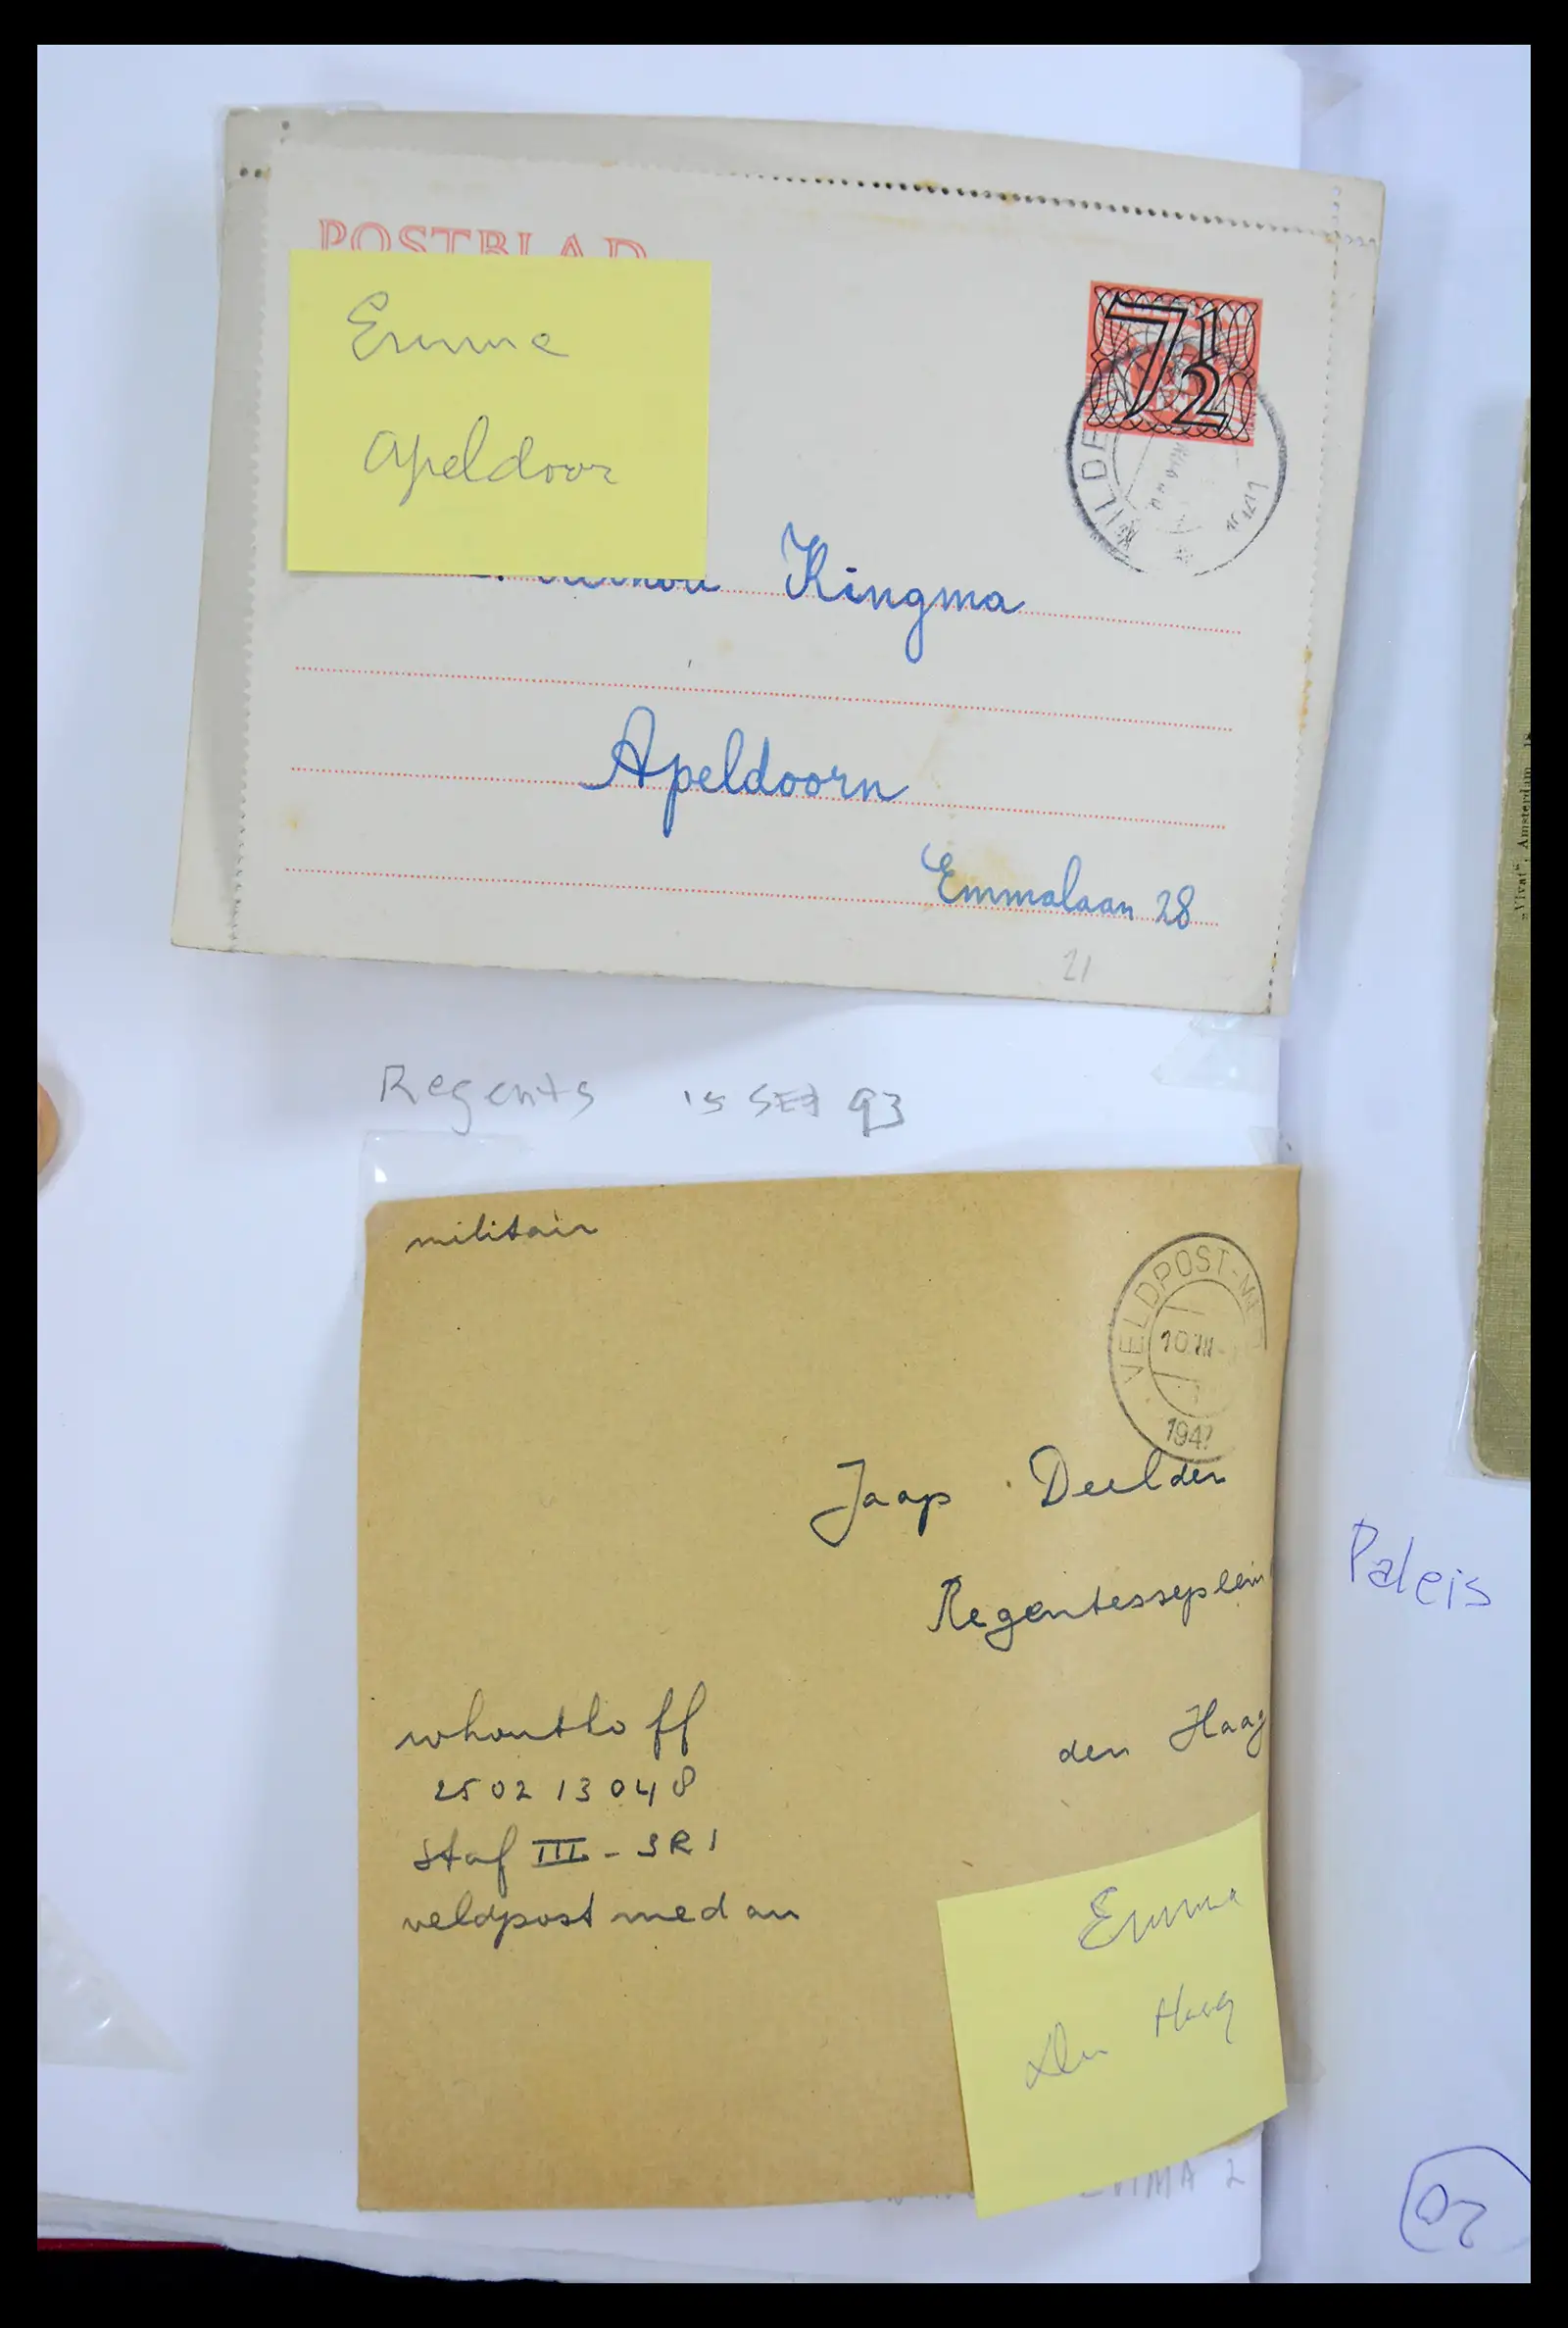 POSTBLAD
Emma
Apeldoor
7½
WILDE
Kingma
Apeldoorn
Emmalaan 28
21
Regents 15 SEP 93
militair
VELDPOST-M
10.III
194
Jaap Deelder
Regentesseplein
den Haag
whouthoff
25 02 13 048
Staf III - 3 R I
veldpost medan
Emma
Den Haag
EMMA 2
Paleis
"Vivat", Amsterdam